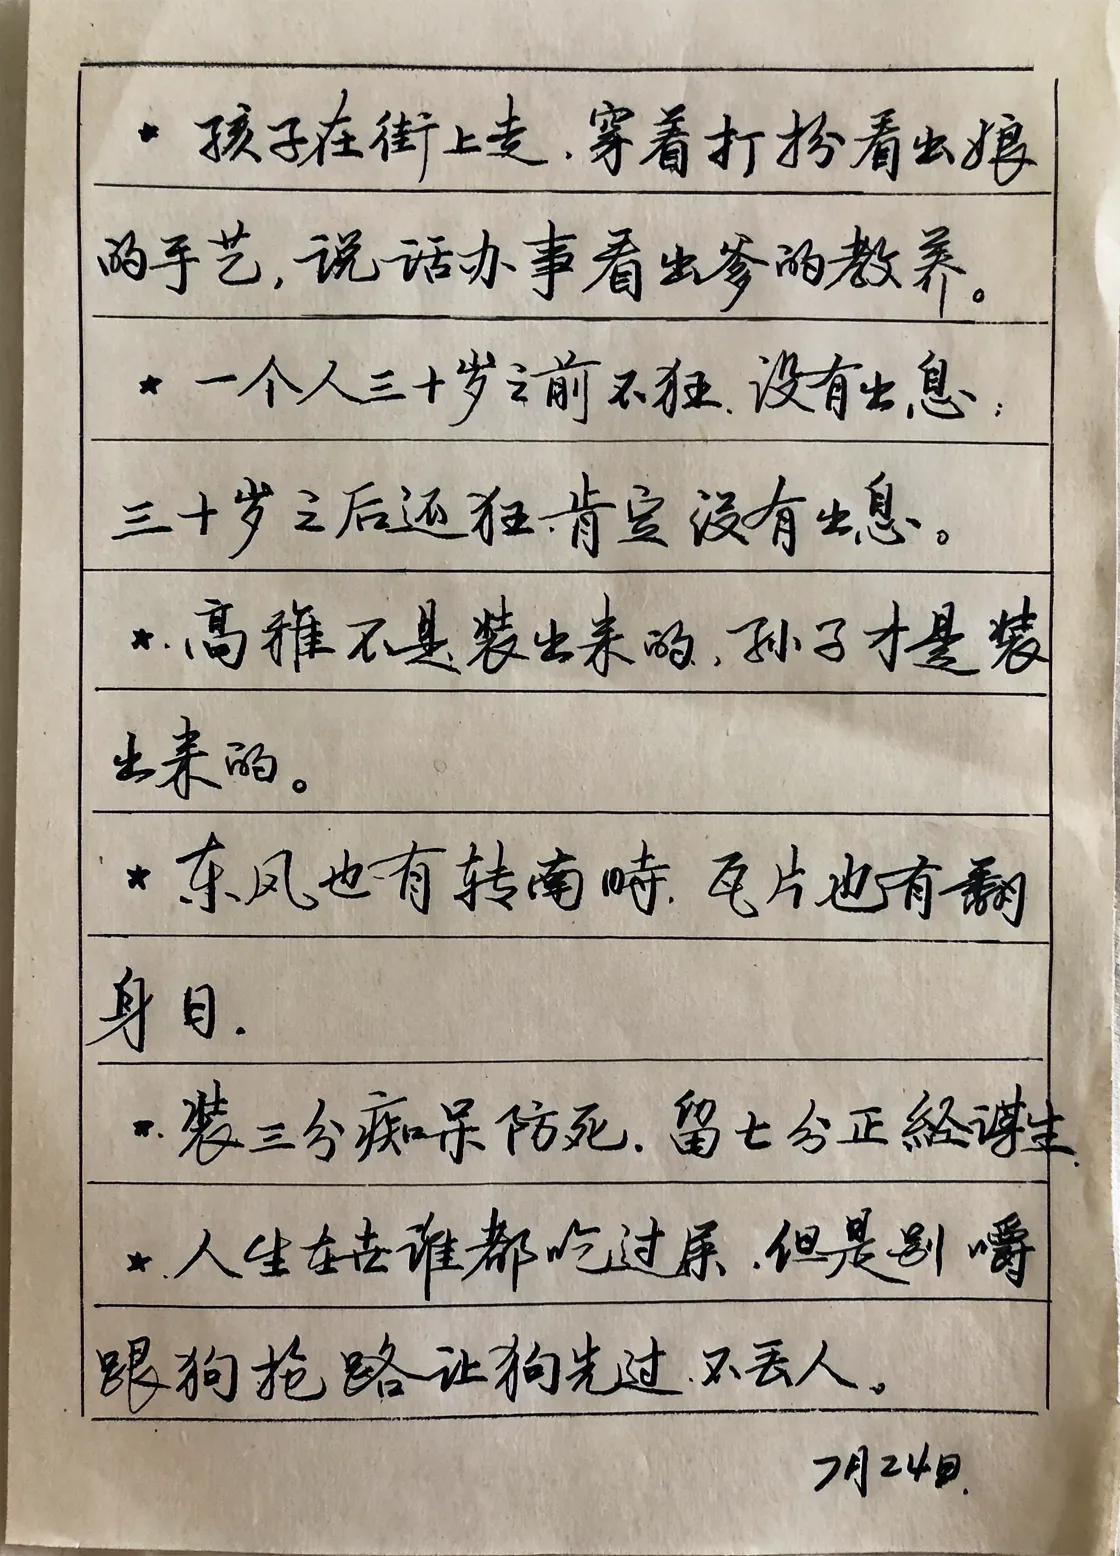 ★ 孩子在街上走.穿着打扮看出娘
的手艺,说话办事看出爹的教养。
★ 一个人三十岁之前不狂.没有出息;
三十岁之后还狂.肯定没有出息。
★.高雅不是装出来的,孙子才是装
出来的。
★ 东风也有转南時.瓦片也有翻
身日.
★.装三分痴呆防死.留七分正経谋生.
★.人生在世谁都吃过屎.但是别嚼
跟狗抢路让狗先过.不丢人。
7月24日.